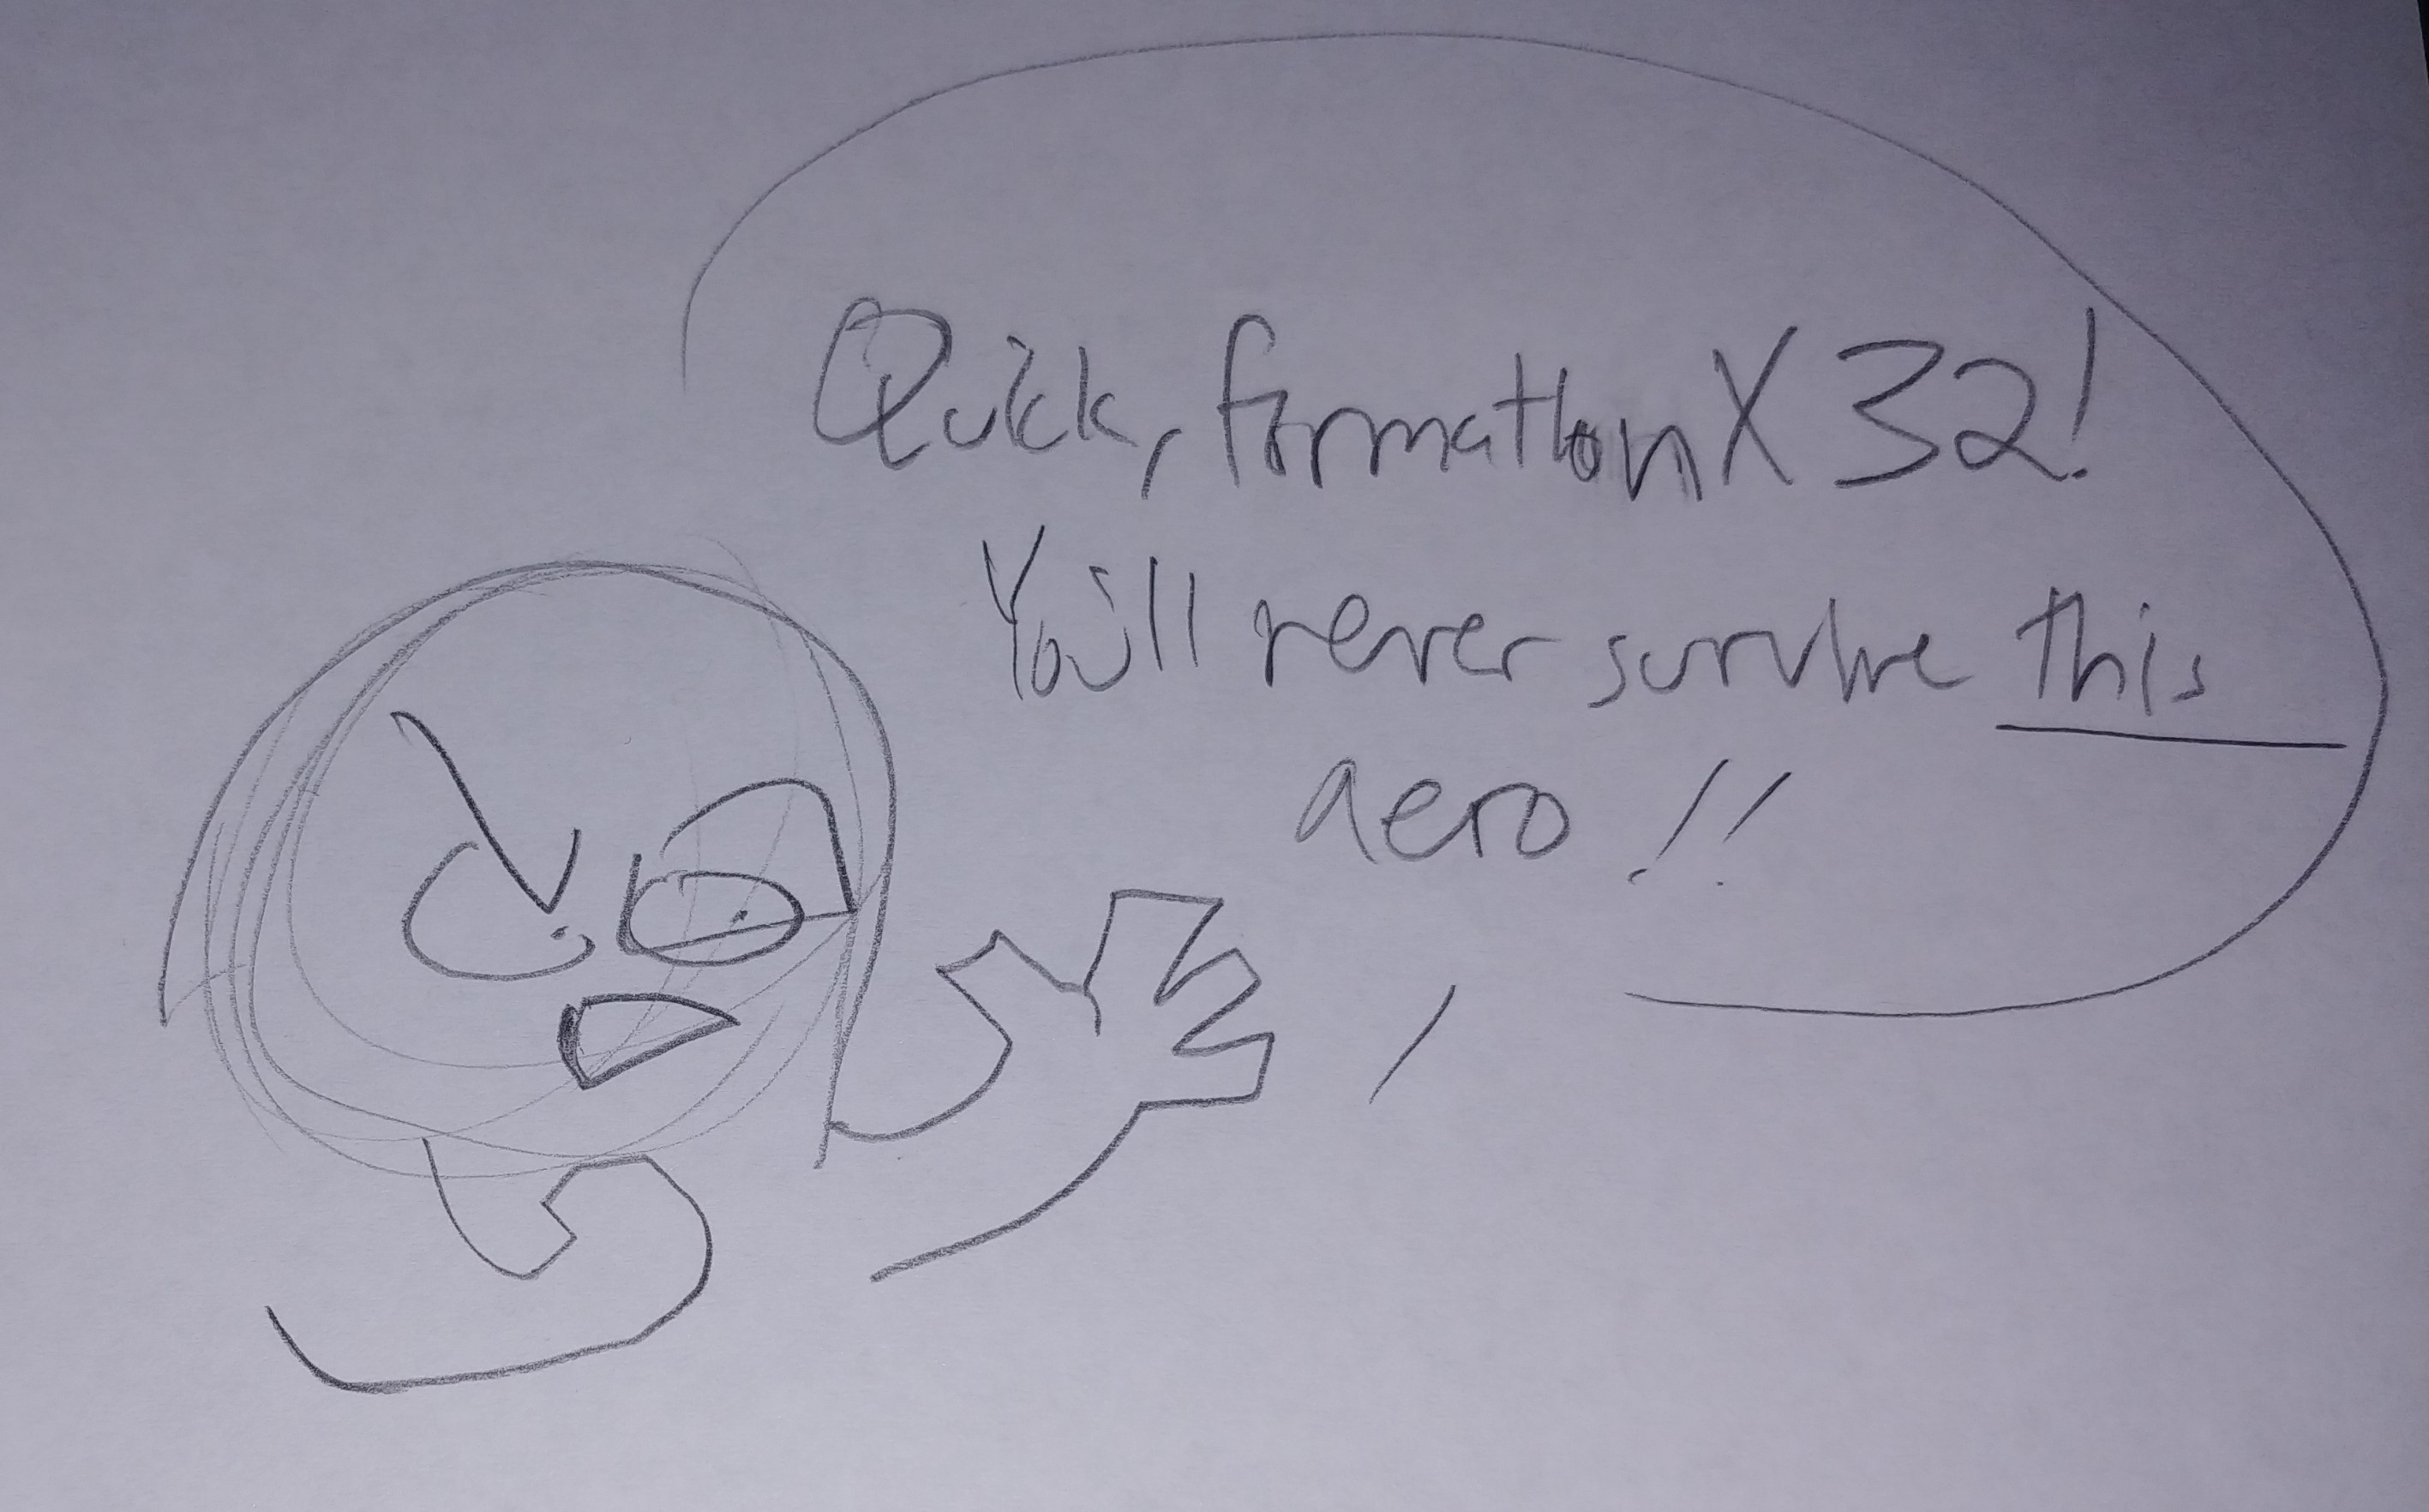 Quick, formation X 32!
You'll never survive this
aero!!